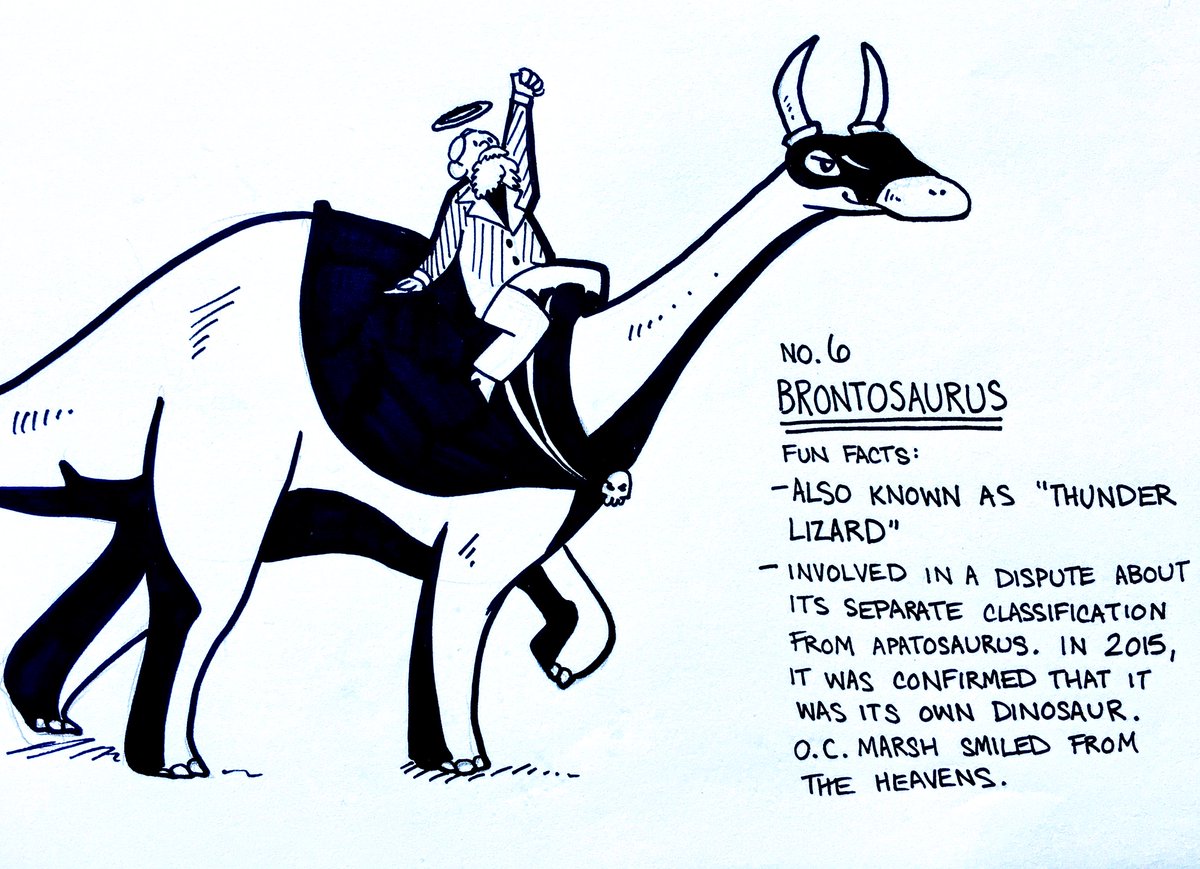 NO. 6
BRONTOSAURUS
FUN FACTS:
-ALSO KNOWN AS "THUNDER
LIZARD"
- INVOLVED IN A DISPUTE ABOUT
ITS SEPARATE CLASSIFICATION
FROM APATOSAURUS. IN 2015,
IT WAS CONFIRMED THAT IT
WAS ITS OWN DINOSAUR.
O.C. MARSH SMILED FROM
THE HEAVENS.